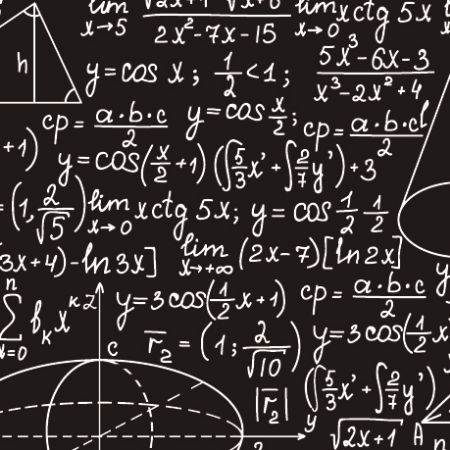 lim x→5 √2x+1 √x+6 / 2x²-7x-15 lim x→0 xctg 5x
h y=cos x; 1/2<1; 5x³-6x-3 / x³-2x²+4
cp= a·b·c/2 y=cos x/2; cp= a·b·cl/2
+1) y=cos(x/2+1) (∫5/3x'+∫2/7y')+3
=(1,2/√5) lim x→0 xctg 5x; y=cos 1/2-1/2
3x+4)-ln3x] lim x→+∞ (2x-7)[ln2x]
n Σ k=0 bₖxᴷ z y=3cos(1/2x+1) cp= a·b·c/2 y
c r̅₂=(1;2/√10) y=3cos(1/2x
|r̅₂| (∫5/3x'+∫2/7y')
y √2x+1 A n